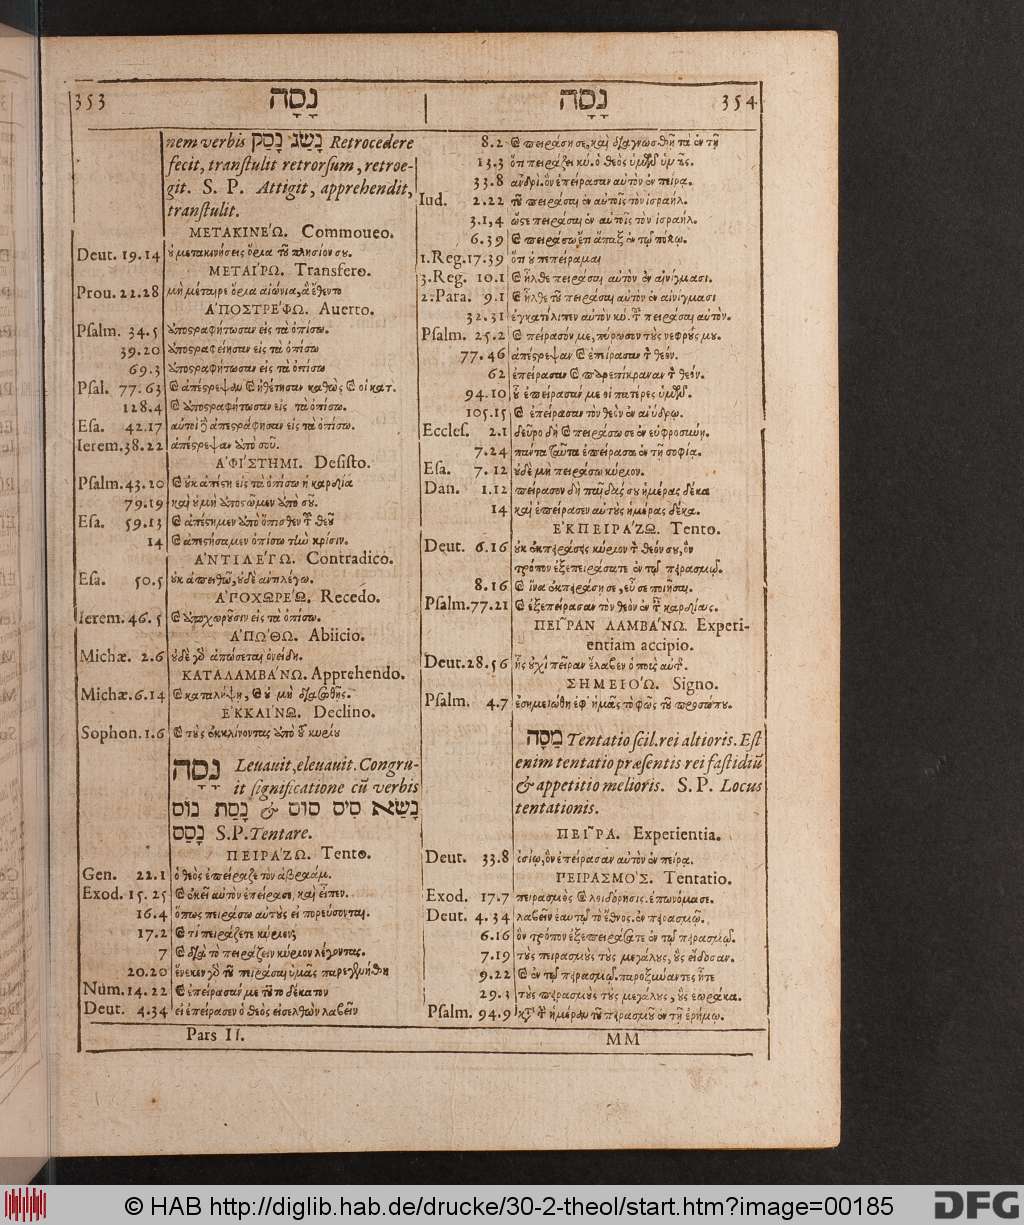 353 נָסָה
נָסָה 354
nem verbis נָשַׂג נָסַק Retrocedere
fecit, tranſtulit retrorſum, retroe-
git. S. P. Attigit, apprehendit,
tranſtulit.
ΜΕΤΑΚΙΝΕΏ. Commoueo.
Deut. 19.14 ὐ μετακινήσεις ὅρια τοῦ πλησίον σου.
ΜΕΤΑΊΡΩ. Transfero.
Prou. 22.28 μὴ μέταιρε ὅρια αἰώνια, ἃ ἔθεντο
ἈΠΟΣΤΡΈΦΩ. Auerto.
Pſalm. 34.5 ἀποστραφήτωσαν εἰς τὰ ὀπίσω.
39.20 ἀποστραφείησαν εἰς τὰ ὀπίσω
69.3 ἀποστραφήτωσαν εἰς τὰ ὀπίσω
Pſal. 77.63 καὶ ἀπέστρεψαν καὶ ἠθέτησαν καθὼς καὶ οἱ πατ.
128.4 καὶ ἀποστραφήτωσαν εἰς τὰ ὀπίσω.
Eſa. 42.17 αὐτοὶ δὲ ἀπεστράφησαν εἰς τὰ ὀπίσω.
Ierem. 38.22 ἀπέστρεψαν ἀπὸ σοῦ.
ἈΦΊΣΤΗΜΙ. Deſiſto.
Pſalm. 43.20 καὶ οὐκ ἀπέστη εἰς τὰ ὀπίσω ἡ καρδία
79.19 καὶ οὐ μὴ ἀποστῶμεν ἀπὸ σοῦ.
Eſa. 59.13 καὶ ἀπέστημεν ἀπὸ ὄπισθεν τοῦ θεοῦ
14 καὶ ἀπεστήσαμεν ὀπίσω τὴν κρίσιν.
ἈΝΤΙΛΈΓΩ. Contradico.
Eſa. 50.5 οὐκ ἀπειθῶ, οὐδὲ ἀντιλέγω.
ἈΓΟΧΩΡΈΩ. Recedo.
Ierem. 46.5 καὶ ἀποχωροῦσιν εἰς τὰ ὀπίσω.
ἈΠΩΘΩ. Abiicio.
Michæ. 2.6 οὐδὲ γὸ ἀπώσεται ὀνείδη.
ΚΑΤΑΛΑΜΒΆΝΩ. Apprehendo.
Michæ. 6.14 καὶ καταλήψῃ, καὶ οὐ μὴ διασωθῇς.
ἘΚΚΛΊΝΩ. Declino.
Sophon. 1.6 καὶ τοὺς ἐκκλίνοντας ἀπὸ τοῦ κυρίου
נָסָה Leuauit, eleuauit. Congru-
it ſignificatione cũ verbis
נָשָׂא סִיס סוּס & נָסַת נוּס
נָסַס S.P. Tentare.
ΠΕΙΡΆΖΩ. Tento.
Gen. 22.1 ὁ θεὸς ἐπείραζε τὸν ἀβραάμ.
Exod. 15.25 καὶ ἐκεῖ αὐτὸν ἐπείρασε, καὶ εἶπεν.
16.4 ὅπως πειράσω αὐτοὺς εἰ πορεύσονται.
17.2 καὶ τί πειράζετε κύριον;
7 καὶ διὰ τὸ πειράζειν κύριον λέγοντας.
20.20 ἕνεκεν γὸ τοῦ πειράσαι ὑμᾶς παρεγενήθη
Num. 14.22 καὶ ἐπείρασάν με τοῦτο δέκατον
Deut. 4.34 εἰ ἐπείρασεν ὁ θεὸς εἰσελθὼν λαβεῖν
Pars II.
8.2 καὶ πειράσῃ σε, καὶ διαγνωσθῇ τὰ ἐν τῇ
13.3 ὅτι πειράζει κύ. ὁ θεὸς ὑμῶν ὑμᾶς.
33.8 ἀνδρὶ. ὃν ἐπείρασαν αὐτὸν ἐν πείρᾳ.
Iud. 2.22 τοῦ πειράσαι ἐν αὐτοῖς τὸν ἰσραήλ.
3.1,4 ὥστε πειράσαι ἐν αὐτοῖς τὸν ἰσραήλ.
6.39 καὶ πειράσω ἔτι ἅπαξ ἐν τῷ πόκῳ.
1.Reg. 17.39 ὅτι οὐ πεπείραμαι
3.Reg. 10.1 καὶ ἦλθε πειράσαι αὐτὸν ἐν αἰνίγμασι.
2.Para. 9.1 καὶ ἦλθε τοῦ πειράσαι αὐτὸν ἐν αἰνίγμασι
32.31 ἐγκατέλιπεν αὐτὸν κύ. τοῦ πειράσαι αὐτὸν.
Pſalm. 25.2 καὶ πείρασόν με, πύρωσον τοὺς νεφρούς μου.
77.46 ἀπέστρεψαν καὶ ἐπείρασαν τὸν θεόν.
62 ἐπείρασαν καὶ παρεπίκραναν τὸν θεόν.
94.10 οὗ ἐπείρασαν με οἱ πατέρες ὑμῶν.
105.15 καὶ ἐπείρασαν τὸν θεὸν ἐν ἀνύδρῳ.
Eccleſ. 2.1 δεῦρο δὴ καὶ πειράσω σε ἐν εὐφροσύνῃ.
7.24 πάντα ταῦτα ἐπείρασα ἐν τῇ σοφίᾳ.
Eſa. 7.12 οὐδὲ μὴ πειράσω κύριον.
Dan. 1.12 πείρασον δὴ παῖδάς σου ἡμέρας δέκα
14 καὶ ἐπείρασεν αὐτοὺς ἡμέρας δέκα.
ἘΚΠΕΙΡΆΖΩ. Tento.
Deut. 6.16 οὐκ ἐκπειράσεις κύριον τὸν θεόν σου, ὃν
τρόπον ἐξεπειράσατε ἐν τῷ πειρασμῷ.
8.16 καὶ ἵνα ἐκπειράσῃ σε, εὖ σε ποιήσῃ.
Pſalm. 77.21 καὶ ἐξεπείρασαν τὸν θεὸν ἐν ταῖς καρδίαις.
ΠΕΙ͂ΡΑΝ ΛΑΜΒΆΝΩ. Experi-
entiam accipio.
Deut. 28.56 ἧς οὐχὶ πεῖραν ἔλαβεν ὁ ποὺς αὐτῆς.
ΣΗΜΕΙΌΩ. Signo.
Pſalm. 4.7 ἐσημειώθη ἐφ᾽ ἡμᾶς τὸ φῶς τοῦ προσώπου.
מַסָּה Tentatio ſcil. rei altioris. Eſt
enim tentatio præſentis rei faſtidiũ
& appetitio melioris. S. P. Locus
tentationis.
ΠΕΙ͂ΡΑ. Experientia.
Deut. 33.8 ὁσίῳ, ὃν ἐπείρασαν αὐτὸν ἐν πείρᾳ.
ΠΕΙΡΑΣΜΌΣ. Tentatio.
Exod. 17.7 πειρασμὸς καὶ λοιδόρησις. ἐπωνόμασε.
Deut. 4.34 λαβεῖν ἑαυτῷ τὸ ἔθνος. ἐν πειρασμῷ.
6.16 ὃν τρόπον ἐξεπειράσατε ἐν τῷ πειρασμῷ.
7.19 τοὺς πειρασμοὺς τοὺς μεγάλους, οὓς εἴδοσαν.
9.22 καὶ ἐν τῷ πειρασμῷ. παροξύναντες ἦτε
29.3 τοὺς πειρασμοὺς τοὺς μεγάλους, οὓς ἑωράκα.
Pſalm. 94.9 κατὰ τὴν ἡμέραν τοῦ πειρασμοῦ ἐν τῇ ἐρήμῳ.
MM
© HAB http://diglib.hab.de/drucke/30-2-theol/start.htm?image=00185
DFG